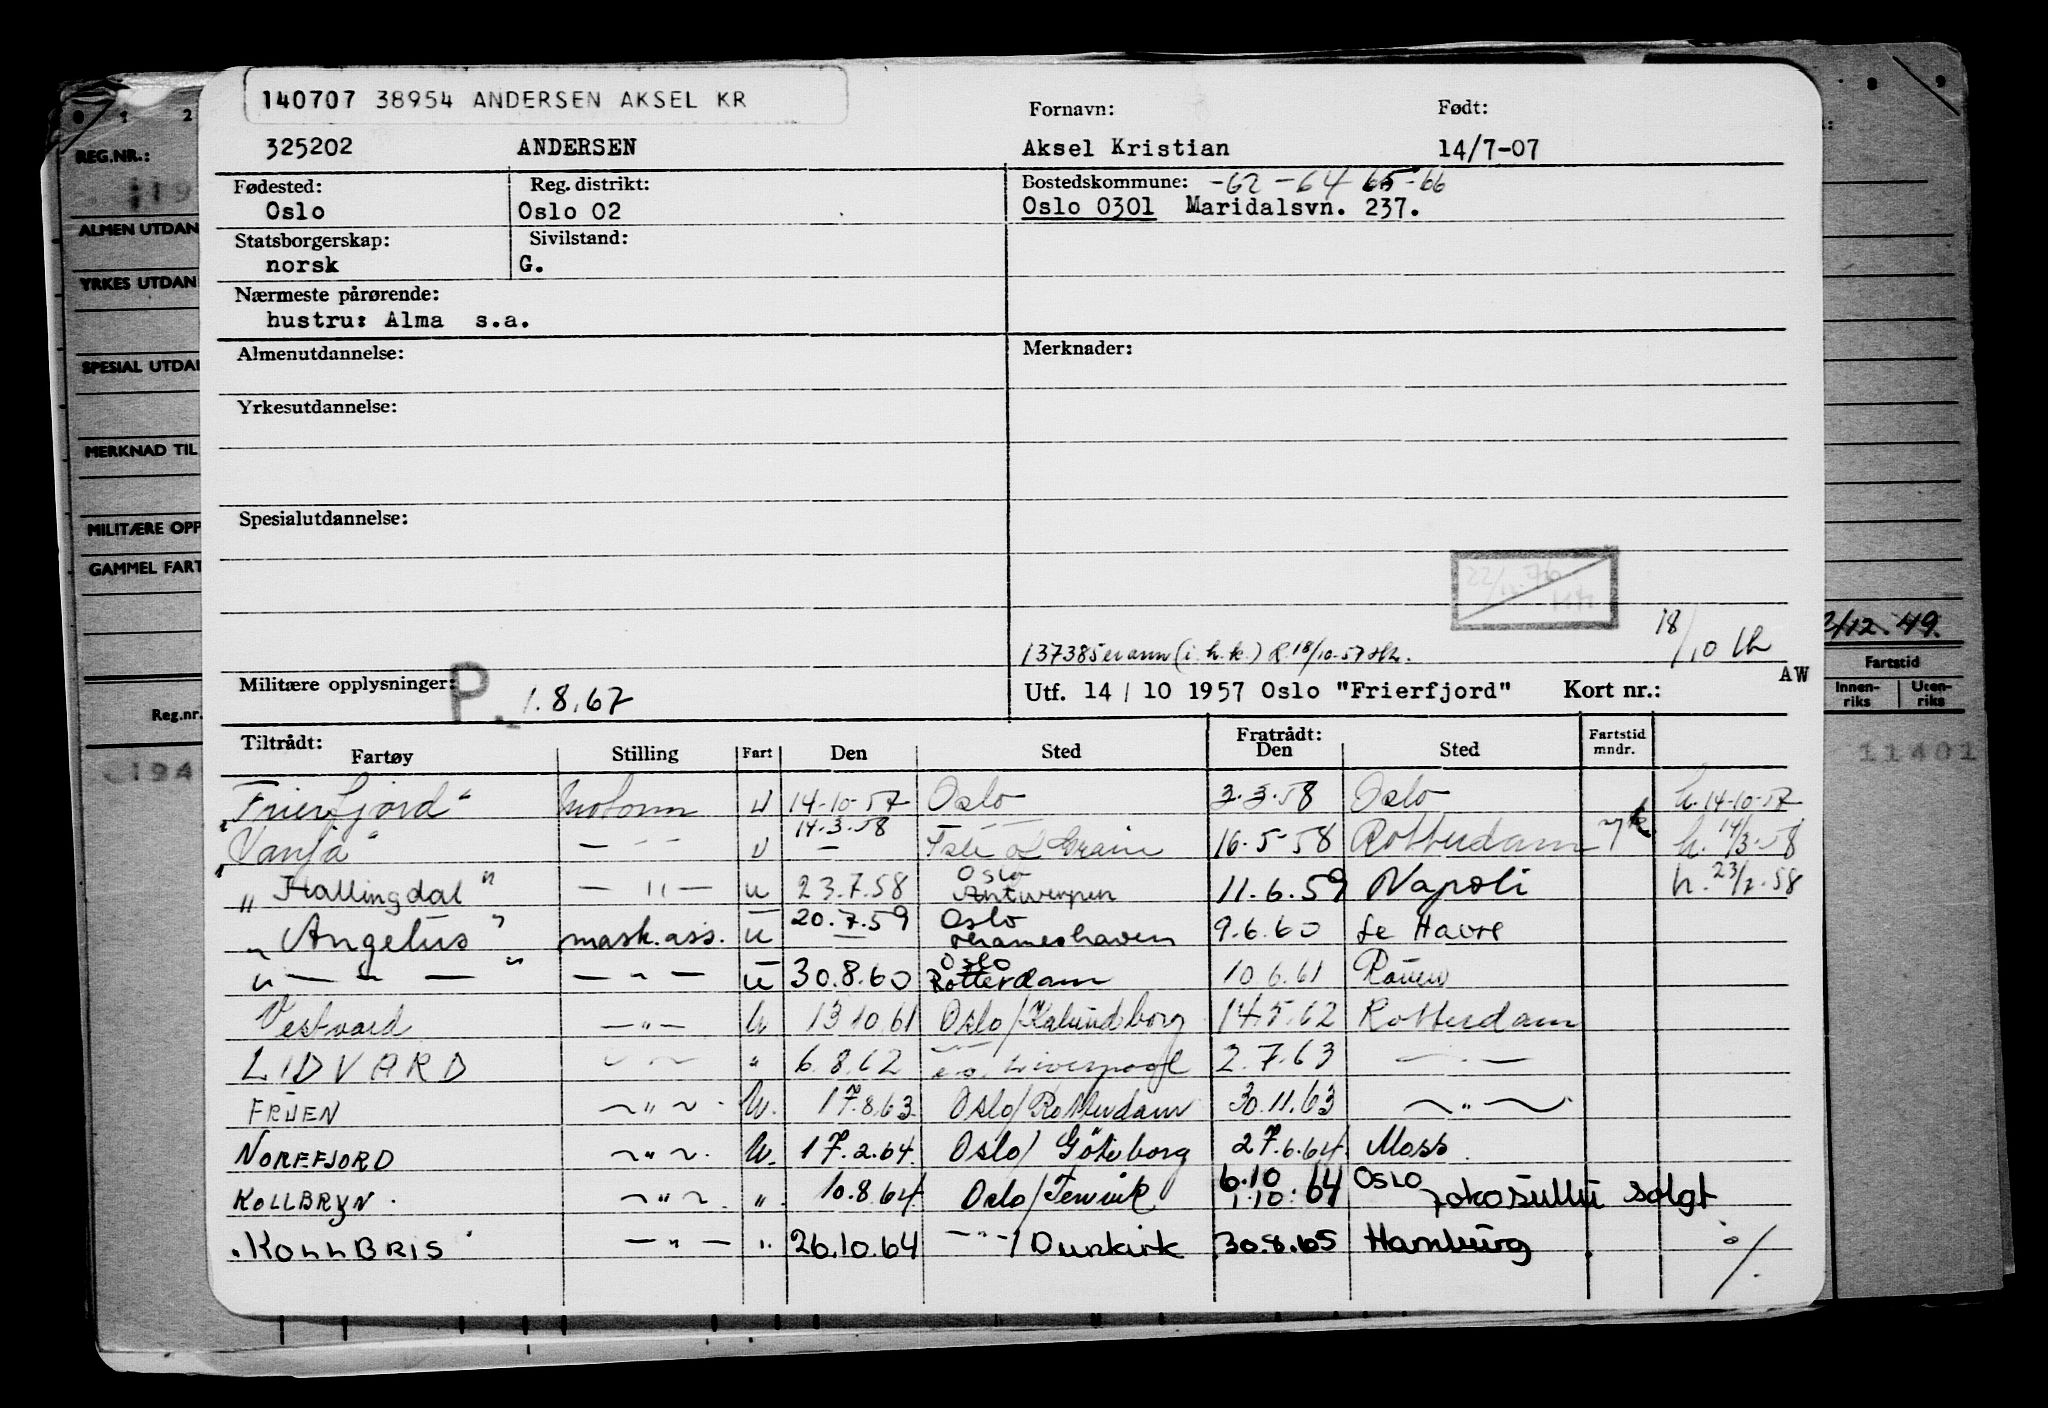 140707 38954 ANDERSEN AKSEL KR
Fornavn: Født:
325202 ANDERSEN Aksel Kristian 14/7-07
Fødested: Reg. distrikt: Bostedskommune: -62 -64 65-66
Oslo Oslo 02 Oslo 0301 Maridalsvn. 237.
Statsborgerskap: Sivilstand:
norsk G.
Nærmeste pårørende:
hustru: Alma s.a.
Almenutdannelse: Merknader:
Yrkesutdannelse:
Spesialutdannelse:
22/12.76
18/10
R 18/10-57
AW
Militære opplysninger: P. 1.8.67 Utf. 14 / 10 1957 Oslo "Frierfjord" Kort nr.:
Tiltrådt: Fratrådt: Fartstid
Fartøy Stilling Fart Den Sted Den Sted mndr.
"Frierfjord" Motorm U 14-10-57 Oslo 3.3.58 Oslo h. 14-10-57
14.3.58
"Vanja" — " — U — 16-5-58 Rotterdam h. 14/3-58
Oslo
"Hallingdal" — " — u 23.7.58 Antwerpen 11.6.59 Napoli h. 23/7-58
20.7.59 Oslo
"Angelus" mask.ass. u — Thameshaven 9.6.60 Le Havre
Oslo
" — " — " — " — u 30.8.60 Rotterdam 10.6.61 Rouen
Vestvard — " — U 13.10.61 Oslo/Kalundborg 14.5.62 Rotterdam
LIDVARD — " — " 6.8.62 Liverpool 2.7.63 — " —
FRUEN — " — U. 17.8.63 Oslo/Rotterdam 30.11.63 — " —
NOREFJORD — " — U. 17.2.64 Oslo/Göteborg 27.6.64 Moss
6.10 64 OSLO
KOLLBRYN — " — " 10.8.64 Oslo/ 1.10.64 solgt
"KOLLBRIS" — " — " 26.10.64 — " — / Dunkirk 30.8.65 Hamburg
%
REG.NR.:
ALMEN UTDAN
YRKES UTDAN
SPESIAL UTDA
MERKNAD TIL
MILITÆRE OPP
GAMMEL FART
Reg.nr.
1 2
8 9
2/12.49.
Fartstid
Innen-
riks
Uten-
riks
11401